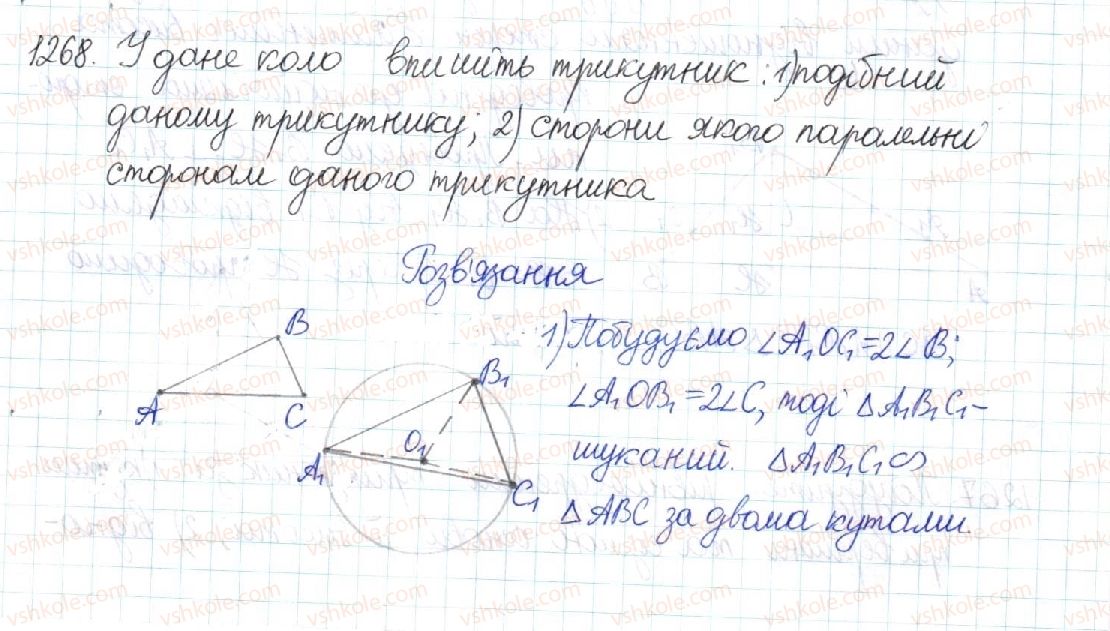 1268. У дане коло впишіть трикутник: 1) подібний
даному трикутнику; 2) сторони якого паралельні
сторонам даного трикутника
Розв'язання
B
A
C
B₁
O₁
A₁
C₁
1) Побудуємо ∠A₁OC₁=2∠B;
∠A₁OB₁=2∠C, тоді △A₁B₁C₁-
шуканий. △A₁B₁C₁∾
△ABC за двома кутами.
vshkole.com